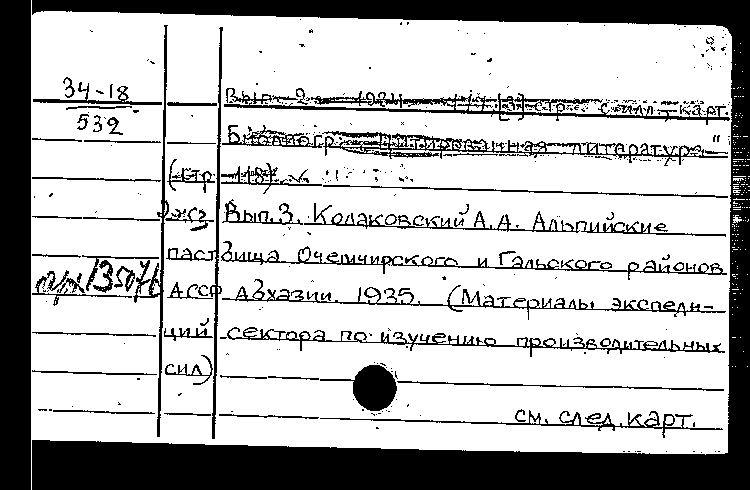 34-18
532
Вып. 2. 1934 [3] стр. с илл., карт.
Библиогр. "Цитированная литература"
(стр. 118)
2жз Вып. 3. Колаковский А.А. Альпийские
пастбища Очемчирского и Гальского районов
АССР Абхазии. 1935. (Материалы экспеди-
ций сектора по изучению производительных
сил)
см. след. карт.